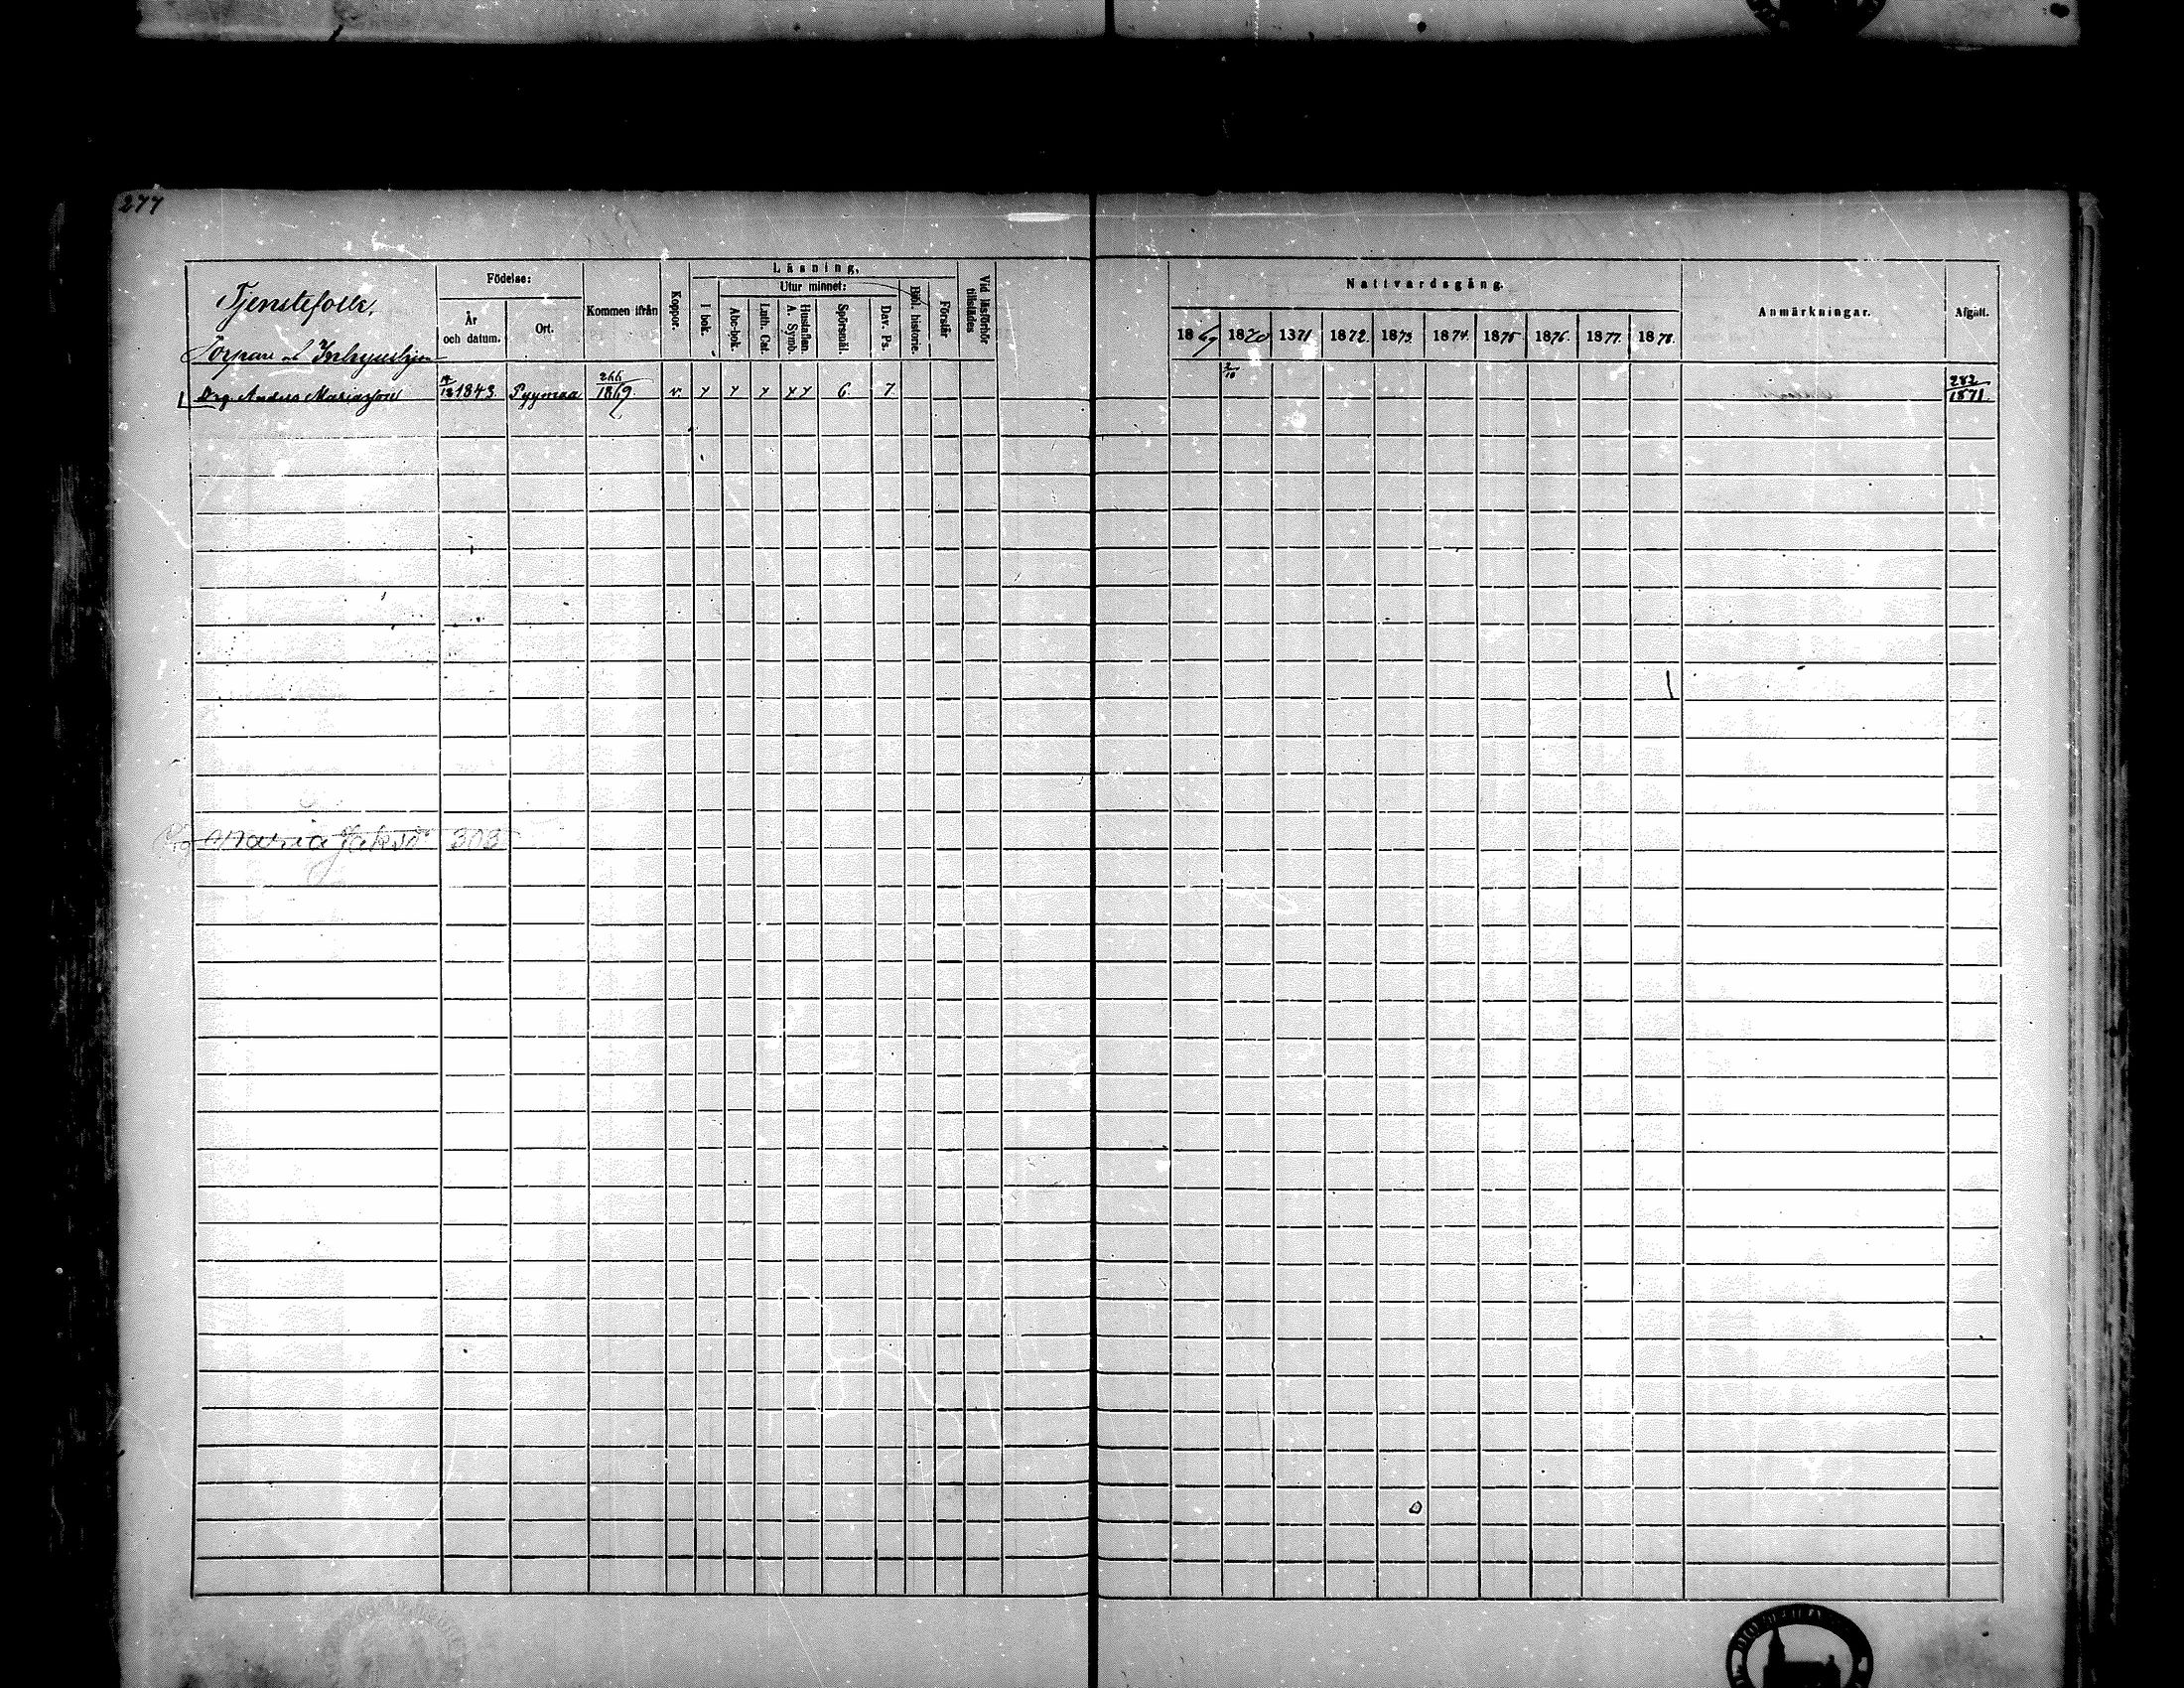 277
Tjenstefolk.
Födelse:
År och datum.
Ort.
Kommen ifrån
Koppor.
Läsning.
I bok.
Utur minnet:
Abc-bok.
Luth. Cat.
Hustaflan. A. Symb.
Spörsmål.
Dav. Ps.
Bibl. historie.
Förstår
Vid läsförhör tillstädes
Nattvardsgång.
1869 1870 1871 1872. 1873. 1874. 1875 1876. 1877. 1878.
Anmärkningar.
Afgått.
Torpare och
Drg. Anders Mariasson 1843. Pyymaa 266/1869. v. y y y y y 6. 7. 283/1871.
Maria Jaksd 303